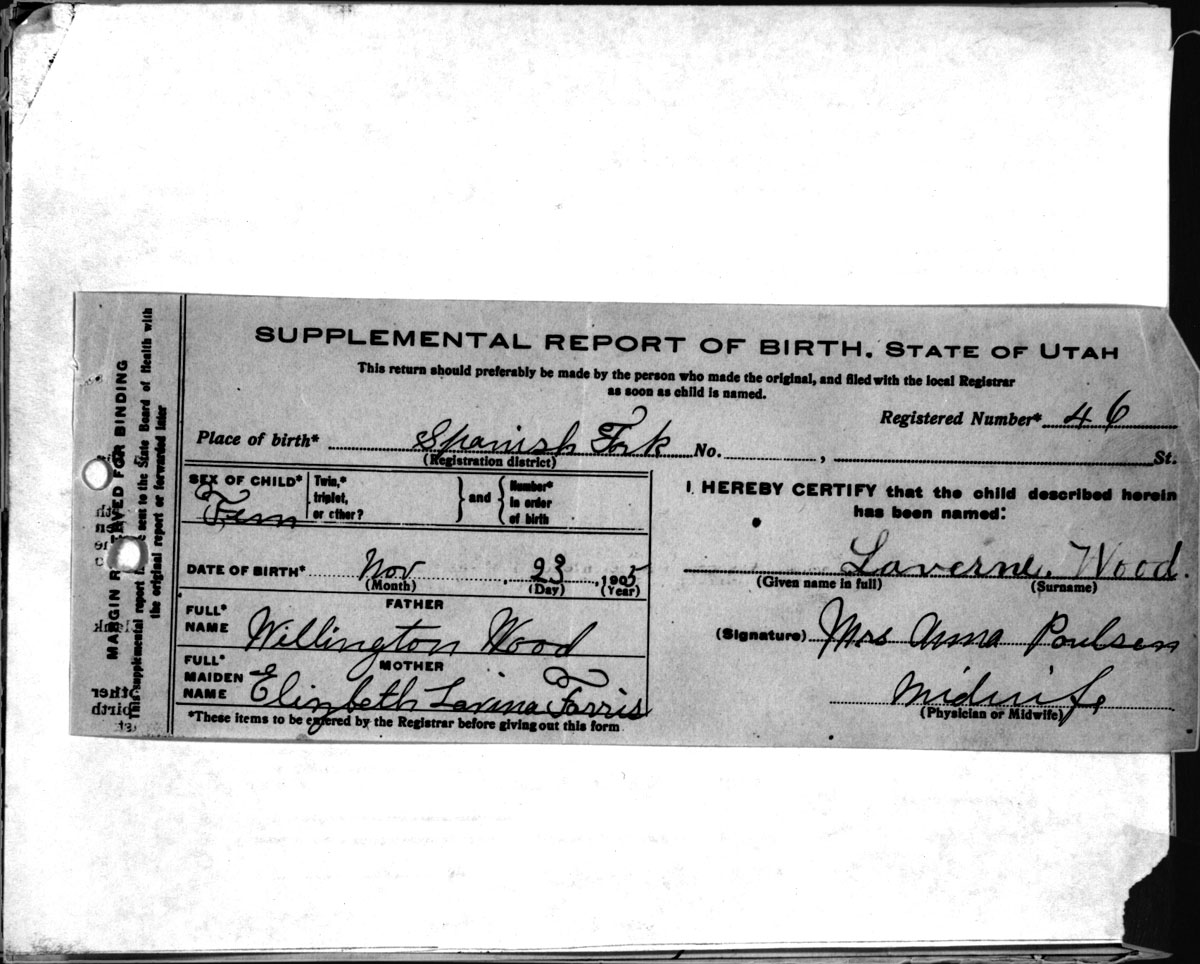 SUPPLEMENTAL REPORT OF BIRTH. STATE OF UTAH
This return should preferably be made by the person who made the original, and filed with the local Registrar
as soon as child is named.
Registered Number* 46
Place of birth* Spanish Fork No. , St.
(Registration district)
SEX OF CHILD* Fem
Twin,* triplet, or other? } and { Number* in order of birth
DATE OF BIRTH* Nov 23, 1905
(Month) (Day) (Year)
FATHER
FULL* NAME Willington Wood
MOTHER
FULL* MAIDEN NAME Elizbeth Lavina Farris
*These items to be entered by the Registrar before giving out this form
I HEREBY CERTIFY that the child described herein
has been named:
Laverne Wood.
(Given name in full) (Surname)
(Signature) Mrs Anna Poulsen
Midwife
(Physician or Midwife)
MARGIN R TAVED FOR BINDING
This supplemental report sent to the State Board of Health with
the original report or forwarded later